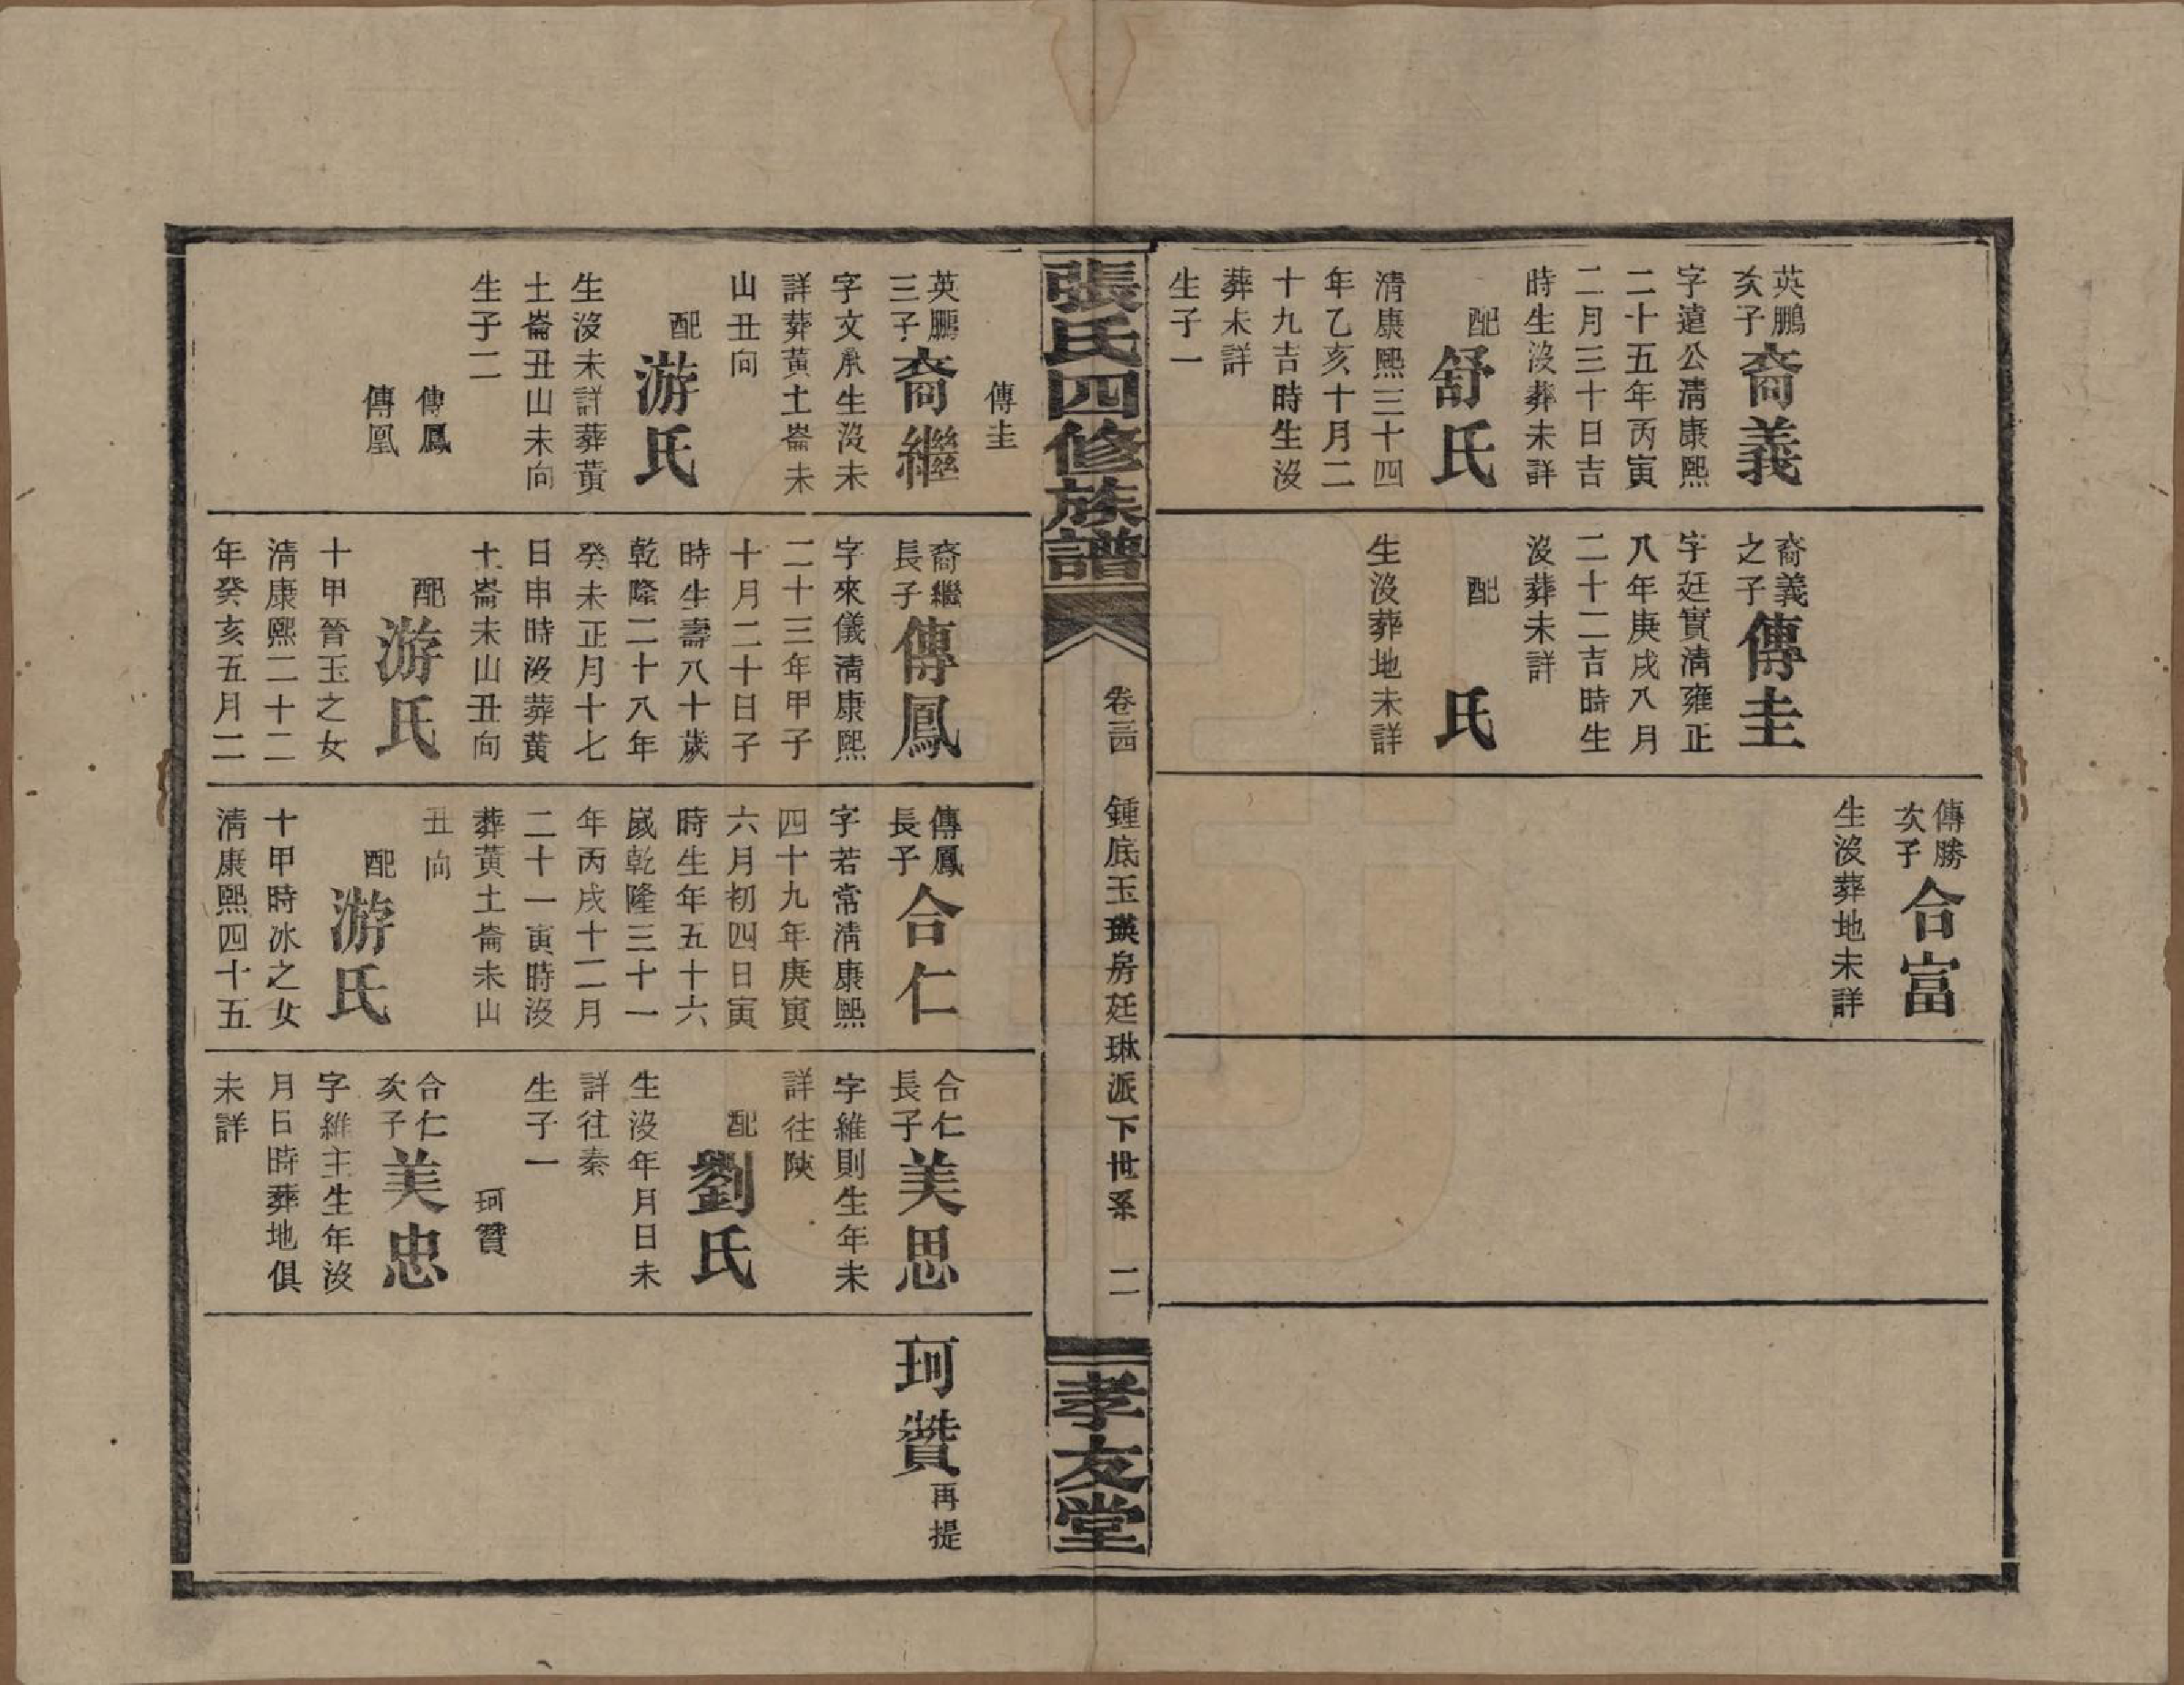 英鵬
次子
裔義
字遠公清康熙
二十五年丙寅
二月三十日吉
時生沒葬未詳
配
舒氏
清康熙三十四
年乙亥十月二
十九吉時生沒
葬未詳
生子一
裔義
之子
傳圭
字廷實清雍正
八年庚戌八月
二十二吉時生
沒葬未詳
配
氏
生沒葬地未詳
傳勝
次子
合富
生沒葬地未詳
張氏四修族譜
卷三四
鍾底玉瑛房廷琳派下世系
二
孝友堂
傳圭
英鵬
三子
裔繼
字文承生沒未
詳葬黃土崙未
山丑向
配
游氏
生沒未詳葬黃
土崙丑山未向
生子二
傳鳳
傳凰
裔繼
長子
傳鳳
字來儀清康熙
二十三年甲子
十月二十日子
時生壽八十歲
乾隆二十八年
癸未正月十七
日申時沒葬黃
土崙未山丑向
配
游氏
十甲晉玉之女
清康熙二十二
年癸亥五月二
傳鳳
長子
合仁
字若常清康熙
四十九年庚寅
六月初四日寅
時生年五十六
歲乾隆三十一
年丙戌十二月
二十一寅時沒
葬黃土崙未山
丑向
配
游氏
十甲時冰之女
清康熙四十五
合仁
長子
美思
字維則生年未
詳往陝
配
劉氏
生沒年月日未
詳往秦
生子一
珂贊
合仁
次子
美忠
字維主生年沒
月日時葬地俱
未詳
珂贊
再提